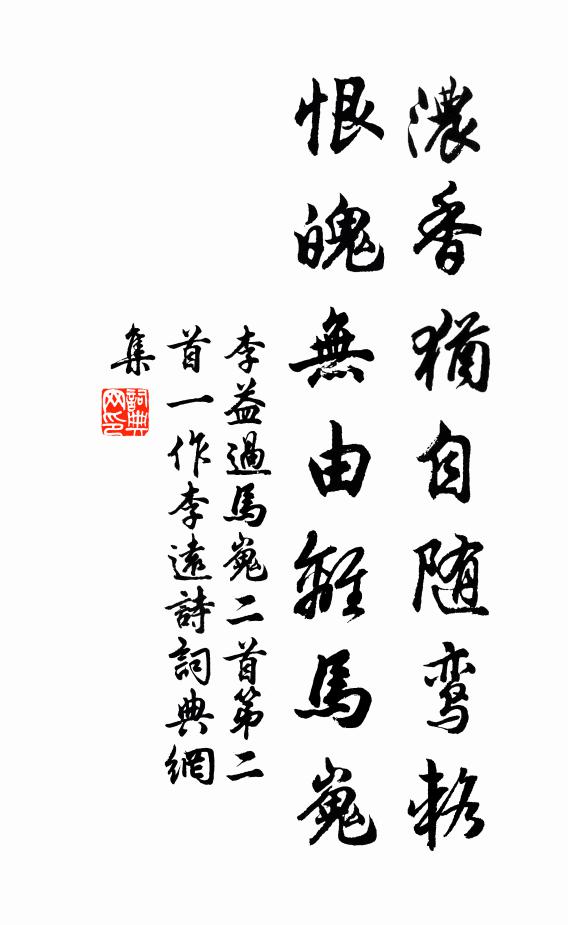 濃香猶自随鸾輅
恨魄無由離馬嵬
李益過馬嵬二首第二
首一作李遠詩詞典網
集
詞典
网印